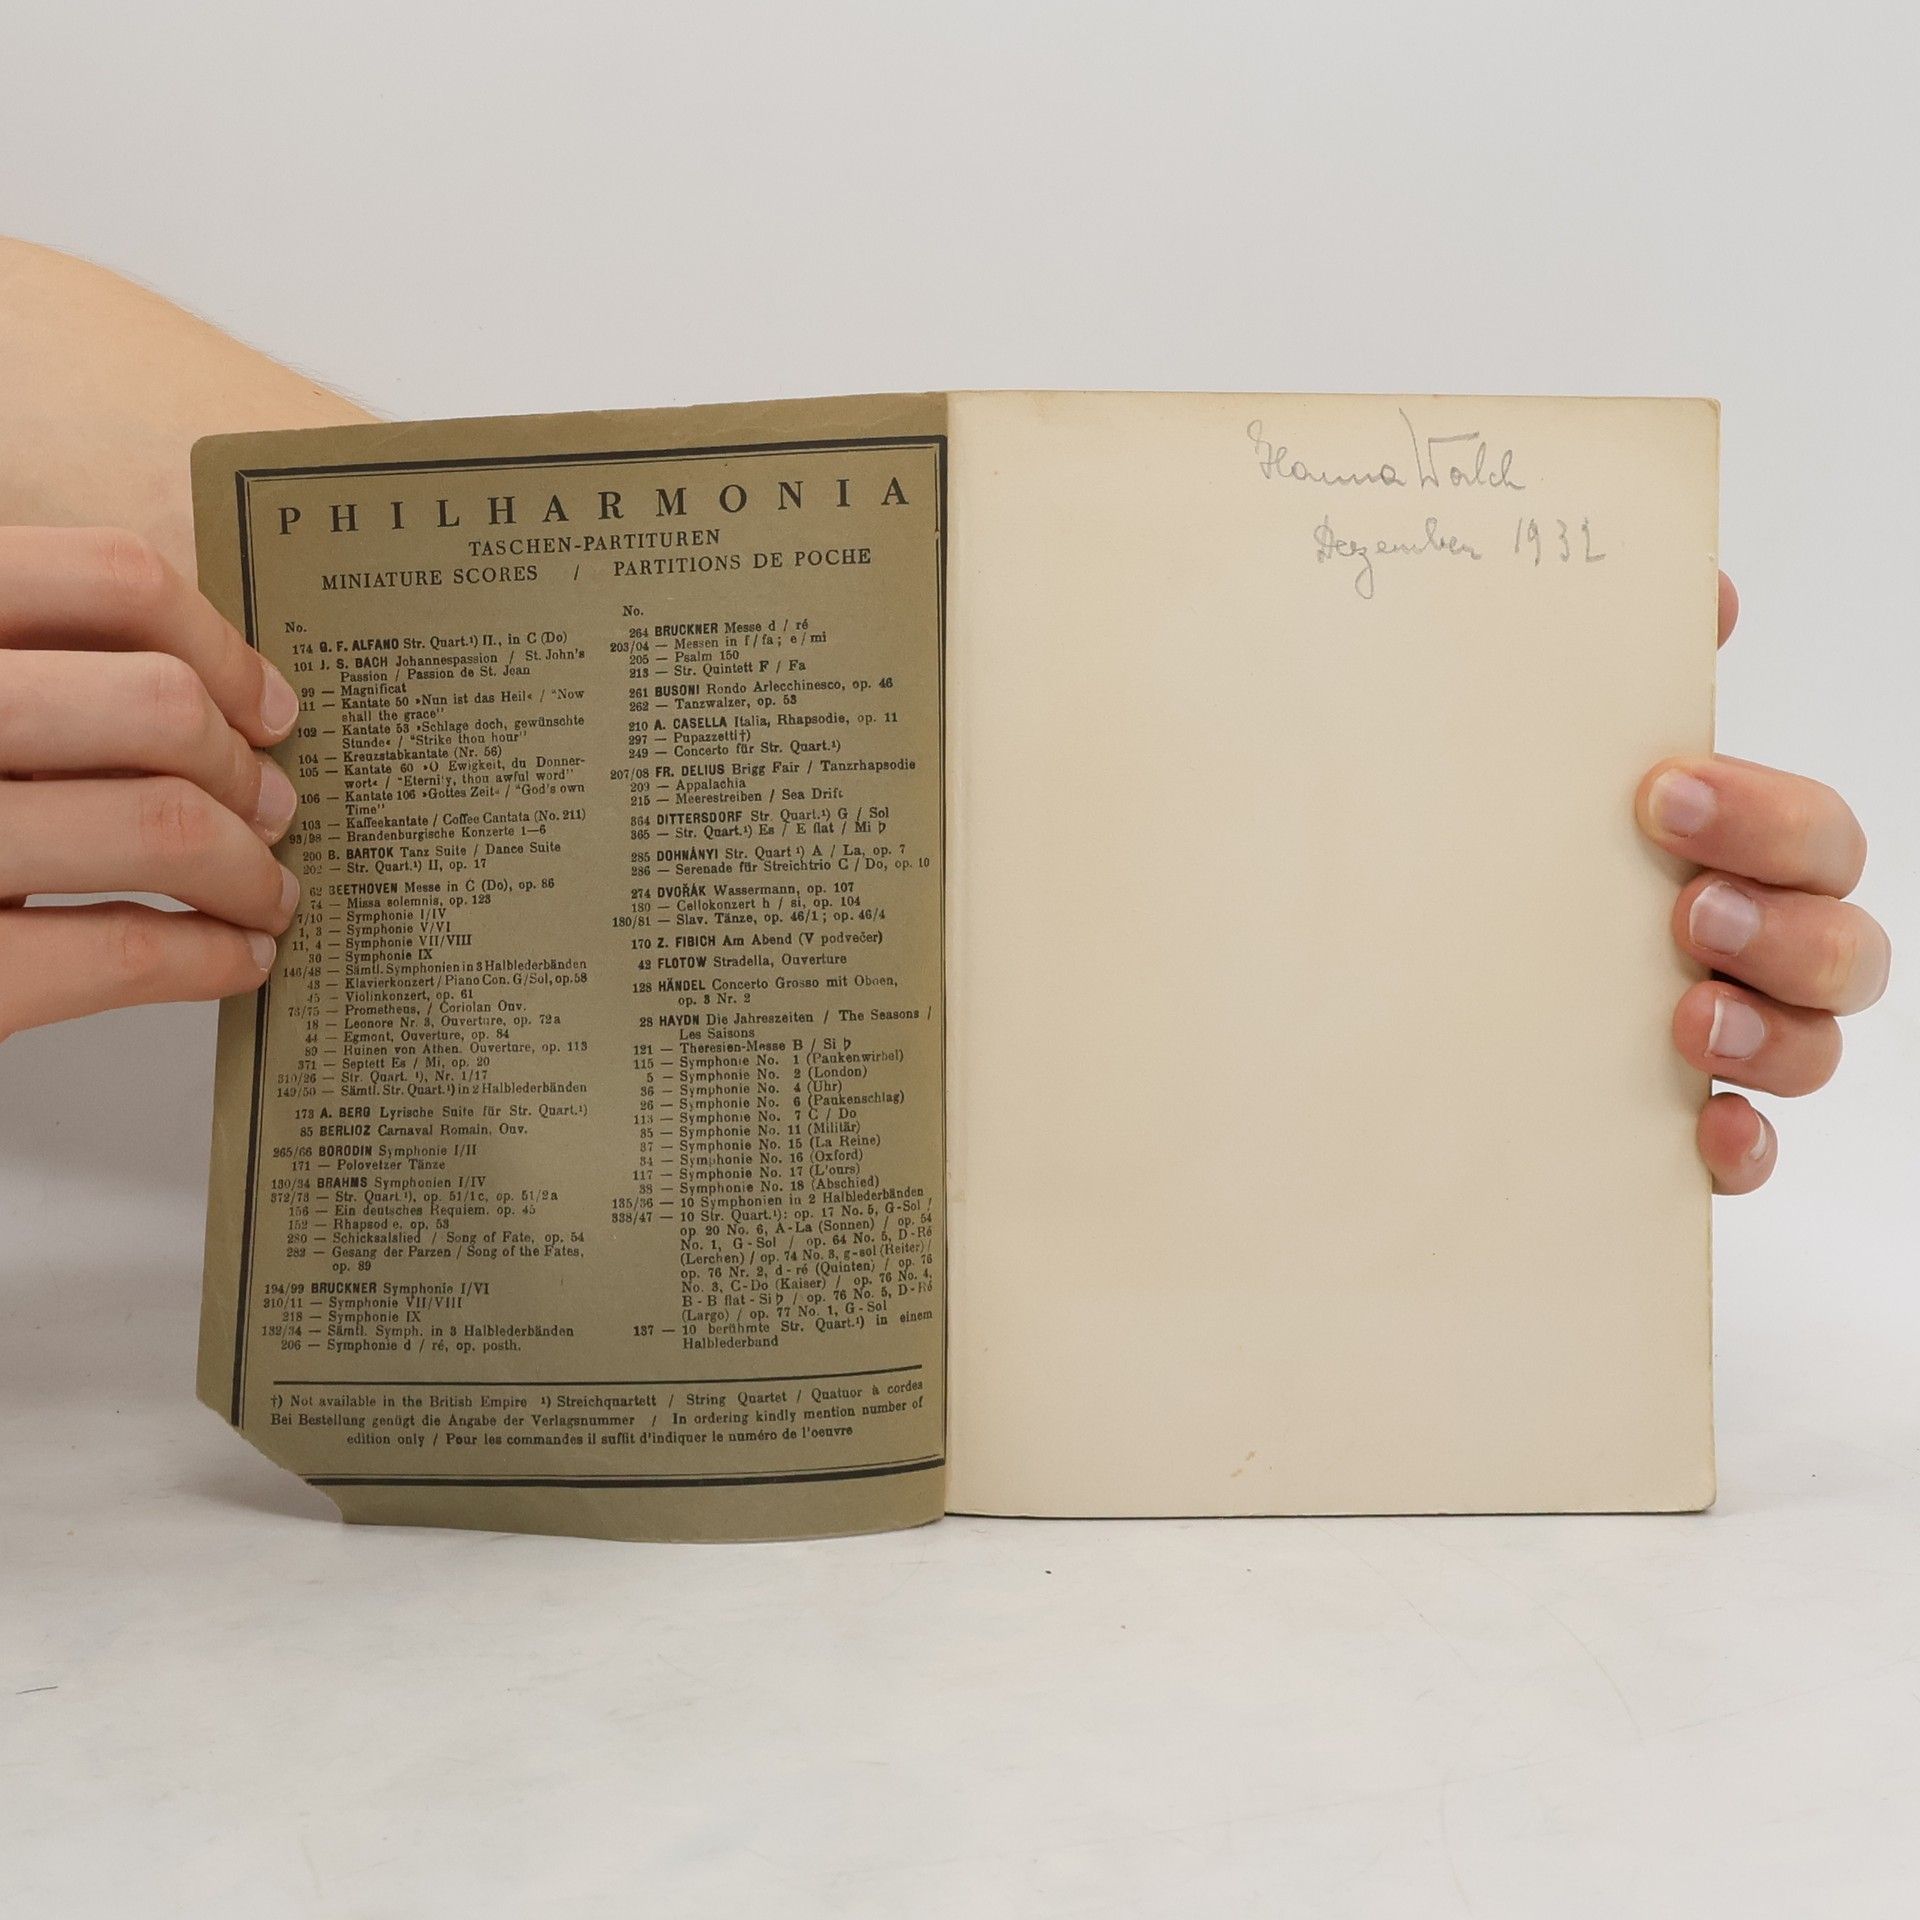 PHILHARMONIA
TASCHEN-PARTITUREN
MINIATURE SCORES / PARTITIONS DE POCHE
No.
174 G. F. ALFANO Str. Quart.¹) II., in C (Do)
101 J. S. BACH Johannespassion / St. John's
Passion / Passion de St. Jean
99 — Magnificat
11 — Kantate 50 »Nun ist das Heil« / "Now
shall the grace"
102 — Kantate 53 »Schlage doch, gewünschte
Stunde« / "Strike thou hour"
104 — Kreuzstabkantate (Nr. 56)
105 — Kantate 60 »O Ewigkeit, du Donner-
wort« / "Eternity, thou awful word"
106 — Kantate 106 »Gottes Zeit« / "God's own
Time"
103 — Kaffeekantate / Coffee Cantata (No. 211)
93/98 — Brandenburgische Konzerte 1—6
200 B. BARTOK Tanz Suite / Dance Suite
202 — Str. Quart.¹) II, op. 17
62 BEETHOVEN Messe in C (Do), op. 86
74 — Missa solemnis, op. 123
7/10 — Symphonie I/IV
1, 3 — Symphonie V/VI
11, 4 — Symphonie VII/VIII
30 — Symphonie IX
146/48 — Sämtl. Symphonien in 3 Halblederbänden
43 — Klavierkonzert / Piano Con. G/Sol, op. 58
45 — Violinkonzert, op. 61
73/75 — Prometheus, / Coriolan Ouv.
18 — Leonore Nr. 3, Ouverture, op. 72a
44 — Egmont, Ouverture, op. 84
89 — Ruinen von Athen. Ouverture, op. 113
371 — Septett Es / Mi, op. 20
310/26 — Str. Quart. ¹), Nr. 1/17
149/50 — Sämtl. Str. Quart.¹) in 2 Halblederbänden
173 A. BERG Lyrische Suite für Str. Quart.¹)
85 BERLIOZ Carnaval Romain, Ouv.
265/66 BORODIN Symphonie I/II
171 — Polovetzer Tänze
130/34 BRAHMS Symphonien I/IV
372/73 — Str. Quart.¹), op. 51/1c, op. 51/2a
156 — Ein deutsches Requiem. op. 45
152 — Rhapsod e, op. 53
280 — Schicksalslied / Song of Fate, op. 54
282 — Gesang der Parzen / Song of the Fates,
op. 89
194/99 BRUCKNER Symphonie I/VI
210/11 — Symphonie VII/VIII
218 — Symphonie IX
132/34 — Sämtl. Symph. in 3 Halblederbänden
206 — Symphonie d / ré, op. posth.
No.
264 BRUCKNER Messe d / ré
203/04 — Messen in f / fa ; e / mi
205 — Psalm 150
213 — Str. Quintett F / Fa
261 BUSONI Rondo Arlecchinesco, op. 46
262 — Tanzwalzer, op. 53
210 A. CASELLA Italia, Rhapsodie, op. 11
297 — Pupazzetti†)
249 — Concerto für Str. Quart.¹)
207/08 FR. DELIUS Brigg Fair / Tanzrhapsodie
209 — Appalachia
215 — Meerestreiben / Sea Drift
364 DITTERSDORF Str. Quart.¹) G / Sol
365 — Str. Quart.¹) Es / E flat / Mi ♭
285 DOHNÁNYI Str. Quart ¹) A / La, op. 7
286 — Serenade für Streichtrio C / Do, op. 10
274 DVOŘÁK Wassermann, op. 107
180 — Cellokonzert h / si, op. 104
180/81 — Slav. Tänze, op. 46/1 ; op. 46/4
170 Z. FIBICH Am Abend (V podvečer)
42 FLOTOW Stradella, Ouverture
128 HÄNDEL Concerto Grosso mit Oboen,
op. 3 Nr. 2
28 HAYDN Die Jahreszeiten / The Seasons /
Les Saisons
121 — Theresien-Messe B / Si ♭
115 — Symphonie No. 1 (Paukenwirbel)
5 — Symphonie No. 2 (London)
36 — Symphonie No. 4 (Uhr)
26 — Symphonie No. 6 (Paukenschlag)
113 — Symphonie No. 7 C / Do
35 — Symphonie No. 11 (Militär)
37 — Symphonie No. 15 (La Reine)
34 — Symphonie No. 16 (Oxford)
117 — Symphonie No. 17 (L'ours)
38 — Symphonie No. 18 (Abschied)
135/36 — 10 Symphonien in 2 Halblederbänden
338/47 — 10 Str. Quart.¹): op. 17 No. 5, G-Sol /
op. 20 No. 6, A-La (Sonnen) / op. 54
No. 1, G-Sol / op. 64 No. 5, D-Ré
(Lerchen) / op. 74 No. 3, g-sol (Reiter) /
op. 76 Nr. 2, d-ré (Quinten) / op. 76
No. 3, C-Do (Kaiser) / op. 76 No. 4,
B-B flat-Si ♭ / op. 76 No. 5, D-Ré
(Largo) / op. 77 No. 1, G-Sol
137 — 10 berühmte Str. Quart.¹) in einem
Halblederband
†) Not available in the British Empire ¹) Streichquartett / String Quartet / Quatuor à cordes
Bei Bestellung genügt die Angabe der Verlagsnummer / In ordering kindly mention number of
edition only / Pour les commandes il suffit d'indiquer le numéro de l'oeuvre
Hanna Walch
Dezember 1932